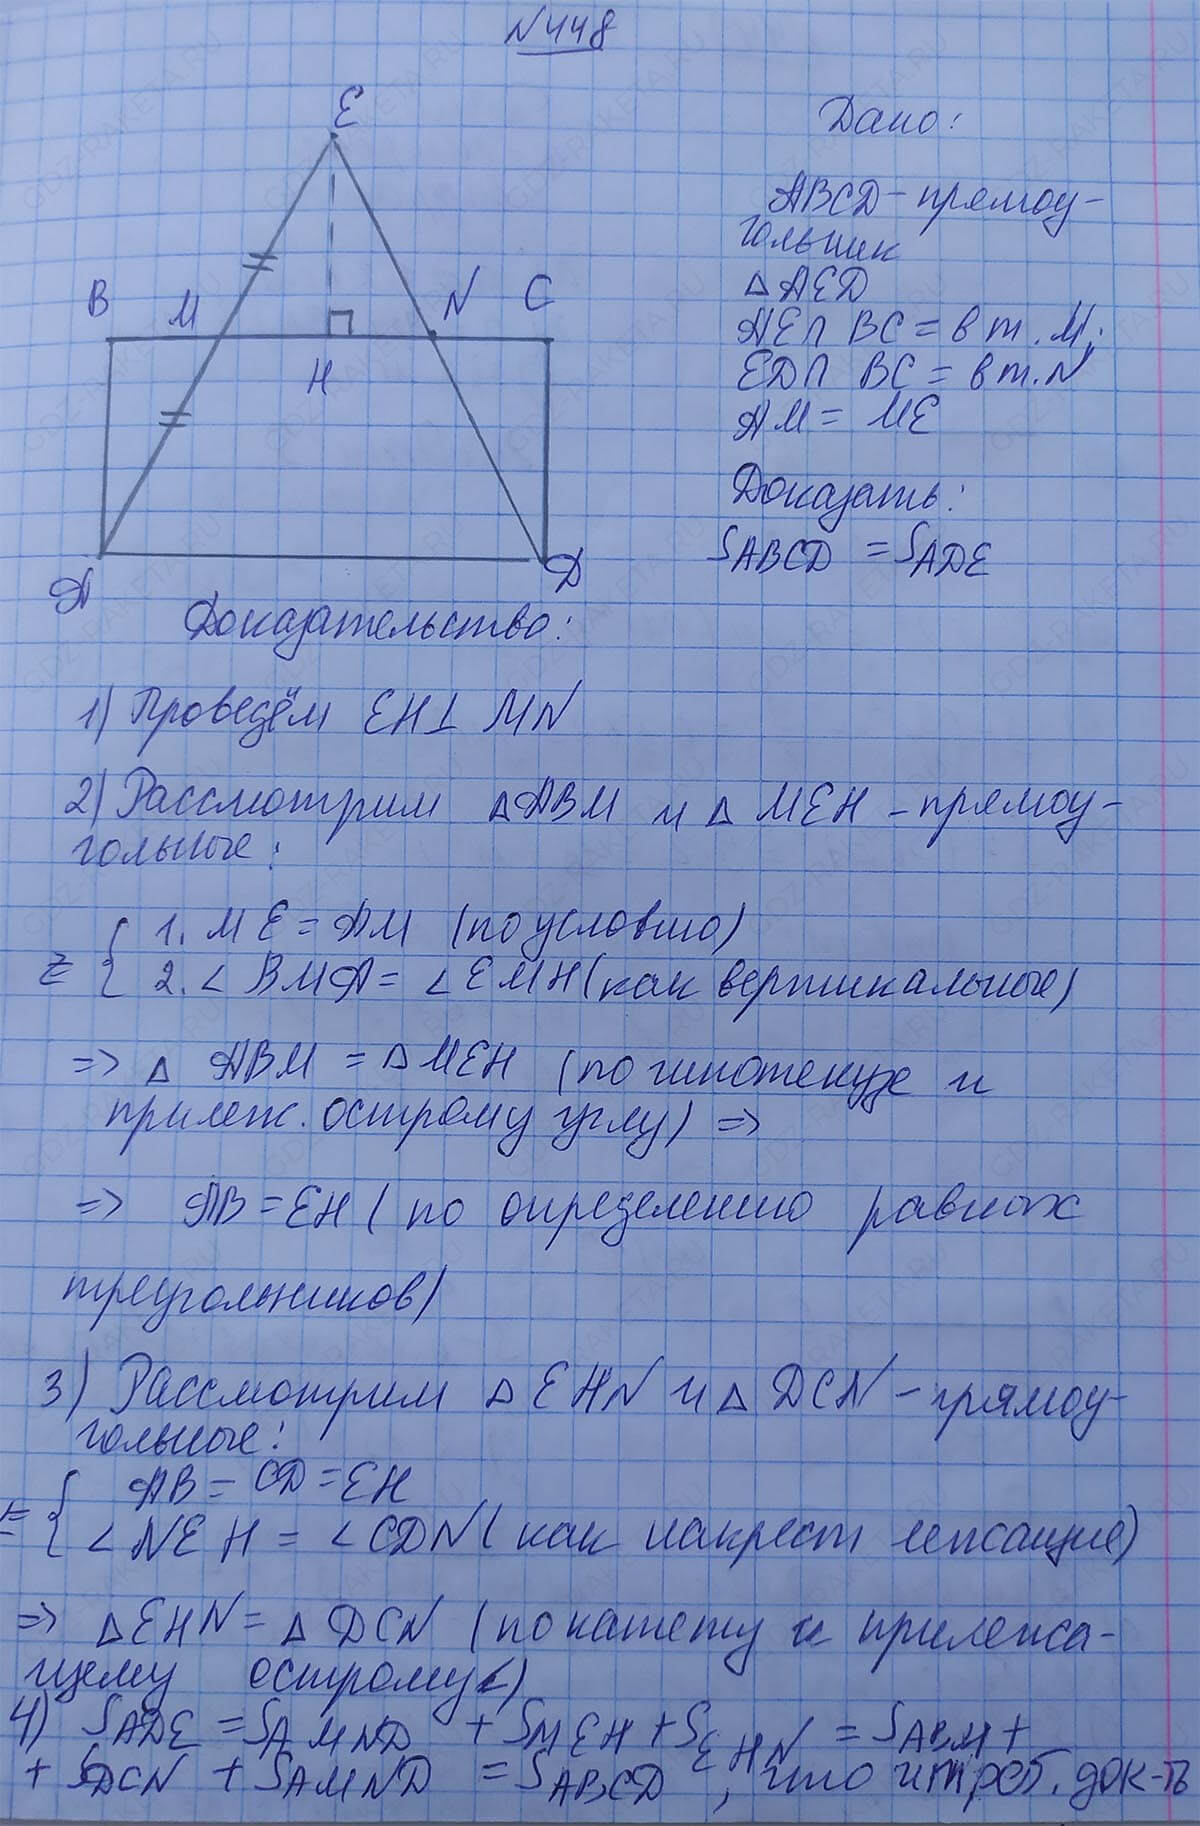 N 448
E
B
M
N
C
H
A
D
Дано:
ABCD - прямоу-
гольник
△ AED
AE∩ BC = в т. M;
ED∩ BC = в т. N
AM = ME
Доказать:
SABCD = SADE
Доказательство:
1) Проведём EH⊥ MN
2) Рассмотрим △ABM и △ MEH - прямоу-
гольные:
{ 1. ME = AM (по условию)
2. ∠ BMA = ∠EMH (как вертикальные)
=> △ ABM = △MEH (по гипотенузе и
прилеж. острому углу) =>
=> AB = EH ( по определению равных
треугольников)
3) Рассмотрим △ EHN и △ DCN - прямоу-
гольные:
{ AB = CD = EH
∠NEH = ∠CDN ( как накрест лежащие)
=> △EHN = △ DCN ( по катету и прилежа-
щему острому ∠)
4) SADE = SAMND + SMEH + SEHN = SABM +
+ SDCN + SAMND = SABCD , что и треб. док-ть